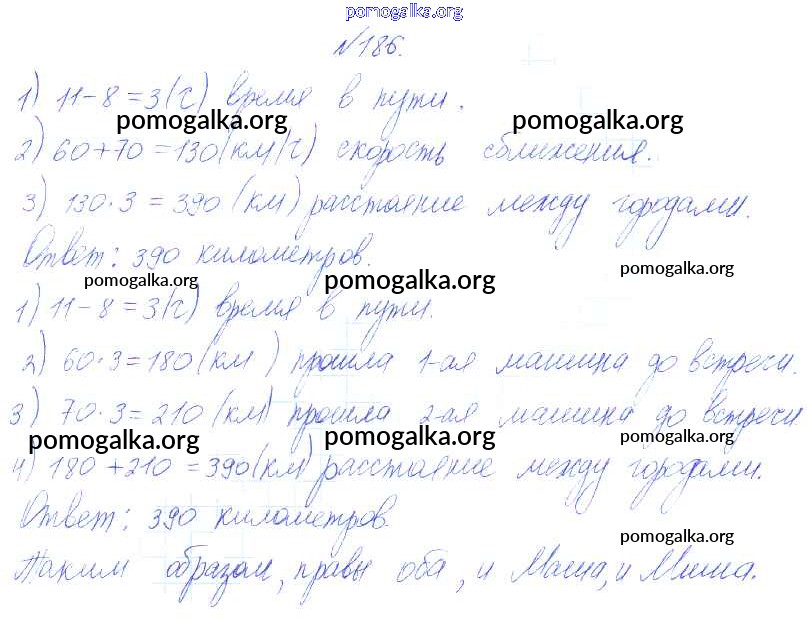 pomogalka.org
№186.
1) 11-8=3(ч) время в пути.
pomogalka.org pomogalka.org
2) 60+70=130(км/ч) скорость сближения.
3) 130·3=390(км) расстояние между городами.
Ответ: 390 километров.
pomogalka.org pomogalka.org pomogalka.org
1) 11-8=3(ч) время в пути.
2) 60·3=180(км) прошла 1-ая машина до встречи.
3) 70·3=210(км) прошла 2-ая машина до встречи.
pomogalka.org pomogalka.org pomogalka.org
4) 180+210=390(км) расстояние между городами.
Ответ: 390 километров.
pomogalka.org
Таким образом, правы оба, и Маша, и Миша.